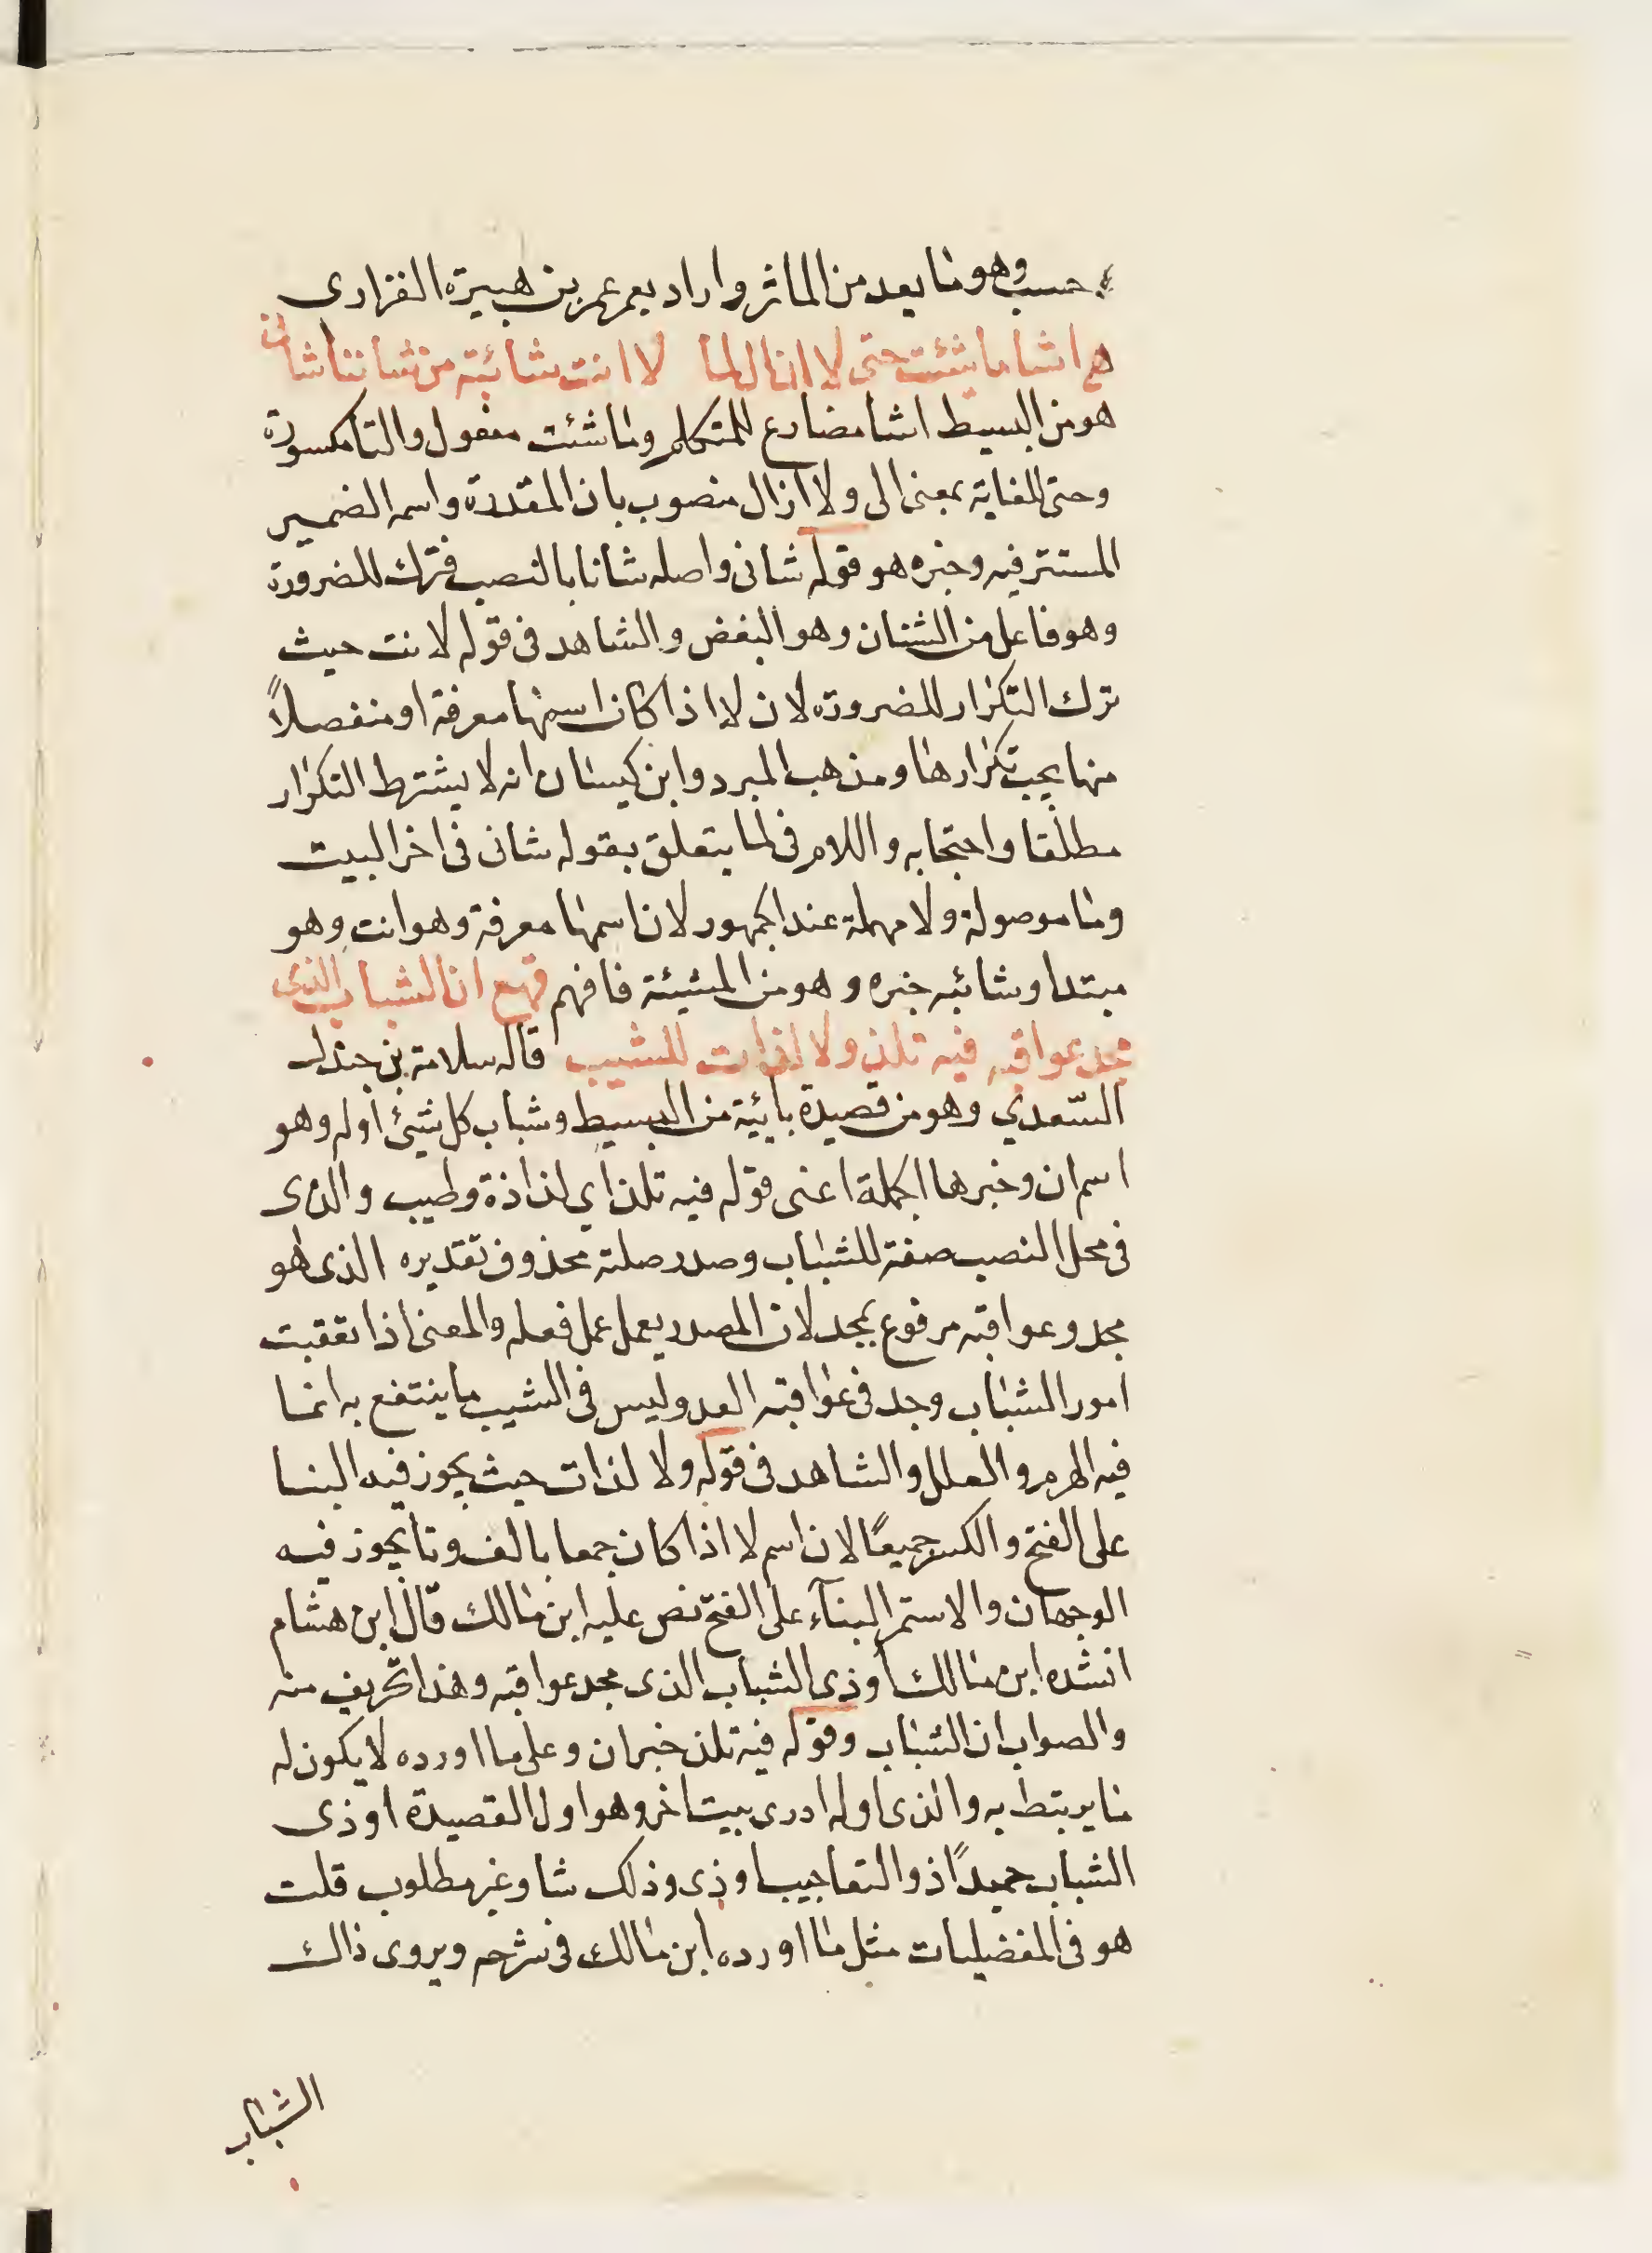 حسب وهو ما يعد من الماثر واراد بعمر عمر بن هبيرة الفزارى
هع اشا ما شئت حتى لا ازال لما لا انت شائية من شاننا شانى
هو من البسيط اشا مضارع للمتكلم وما شئت مفعول والتا مكسورة
وحتى للغاية بمعنى الى ولا ازال منصوب بان المقدرة واسمه الضمير
المستتر فيه وخبره هو قوله شانى واصله شانا بالنصب فترك للضرورة
وهو فاعل من الشنان وهو البغض والشاهد فى قوله لا انت حيث
ترك التكرار للضرورة لان لا اذا كان اسمها معرفة او منفصلاً
منها يجب تكرارها ومذهب المبرد وابن كيسان انه لا يشترط التكرار
مطلقا واحتجا به واللام فى لما يتعلق بقوله شانى فى اخر البيت
وما موصولة ولا مهملة عند الجمهور لان اسمها معرفة وهو انت وهو
مبتدا وشائيه خبره وهو من المشيئة فافهم قهع ان الشباب الذى
مجد عواقبه فيه تلذ ولا لذات للشيب قاله سلامة بن جندل
السّعدي وهو من قصيدة بائية من البسيط وشباب كل شئ اوله وهو
اسم ان وخبرها الجملة اعنى قوله فيه تلذ اي لذاذة وطيب والذى
فى محل النصب صفة للشباب وصدر صلته محذوف تقديره الذى هو
مجد وعواقبه مرفوع بمجد لان المصدر يعمل عمل فعله والمعنى اذا تعقبت
امور الشباب وجد فى عواقبه العد وليس فى الشيب ما ينتفع به انما
فيه الهرم والعلل والشاهد فى قوله ولا لذات حيث يجوز فيه البنا
على الفتح والكسر جميعًا لان اسم لا اذا كان جمعا بالف وتا يجوز فيه
الوجهان والاستمر البنآء على الفتح نص عليه ابن مالك قال ابن هشام
انشده ابن مالك اوذى الشباب الذى مجد عواقبه وهذا تحريف منه
والصواب ان الشباب وقوله فيه تلذ خبر ان وعلى ما اورده لا يكون له
ما يرتبط به والذى اوله اودى بيت اخر وهو اول القصيدة اوذى
الشباب حميدًا ذو التعاجيب اوذى وذلك شاو غير مطلوب قلت
هو فى المفضليات مثل ما اورده ابن مالك فى شرحه ويروى ذاك
الشباب